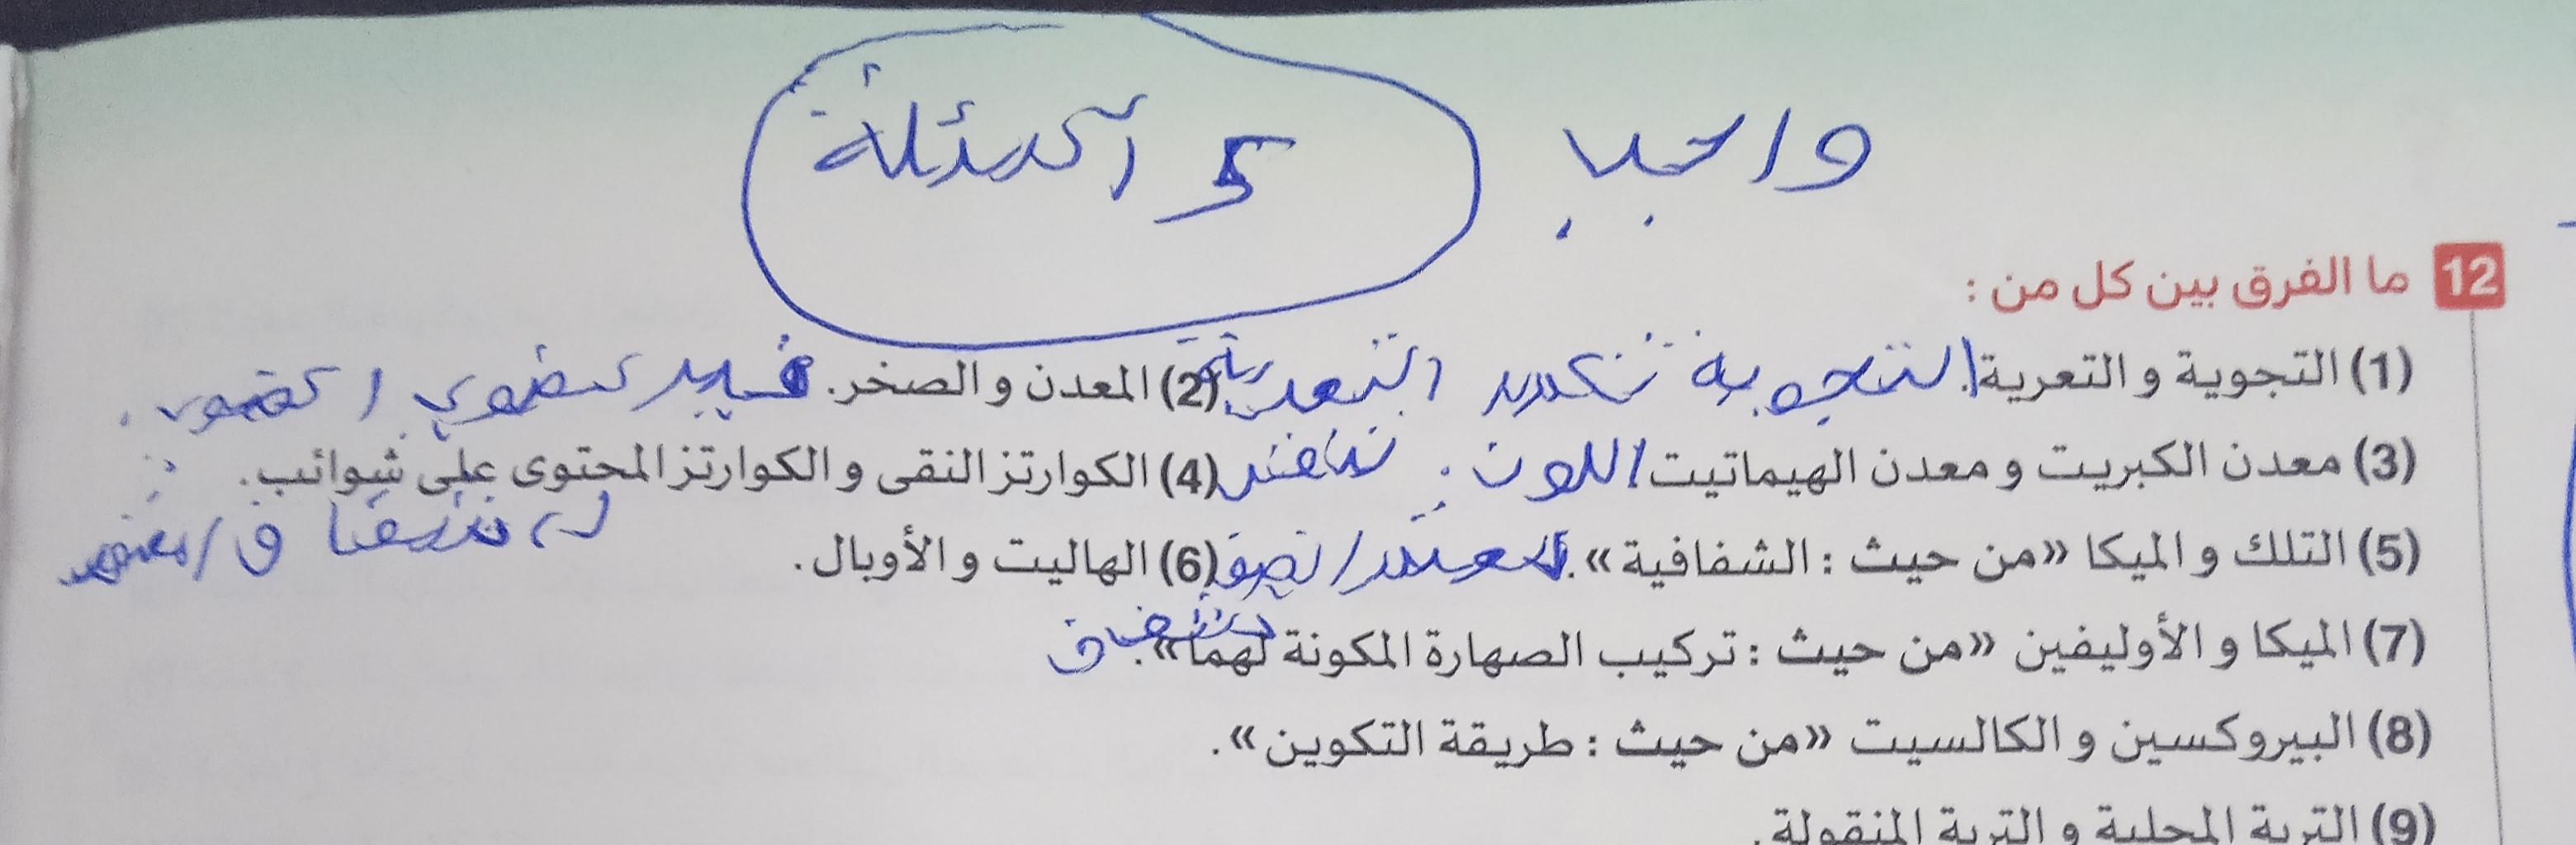 واجب 5 أسئلة
12 ما الفرق بين كل من :
(1) التجوية و التعرية. التجوية تكسير التعرية (2) المعدن و الصخر.
(3) معدن الكبريت و معدن الهيماتيت اللون . (4) الكوارتز النقى و الكوارتز المحتوى على شوائب.
(5) التلك و الميكا «من حيث : الشفافية». (6) الهاليت و الأوبال.
(7) الميكا و الأوليفين «من حيث : تركيب الصهارة المكونة لهما».
(8) البيروكسين و الكالسيت «من حيث : طريقة التكوين».
(9) التربة المحلية و التربة المنقولة.